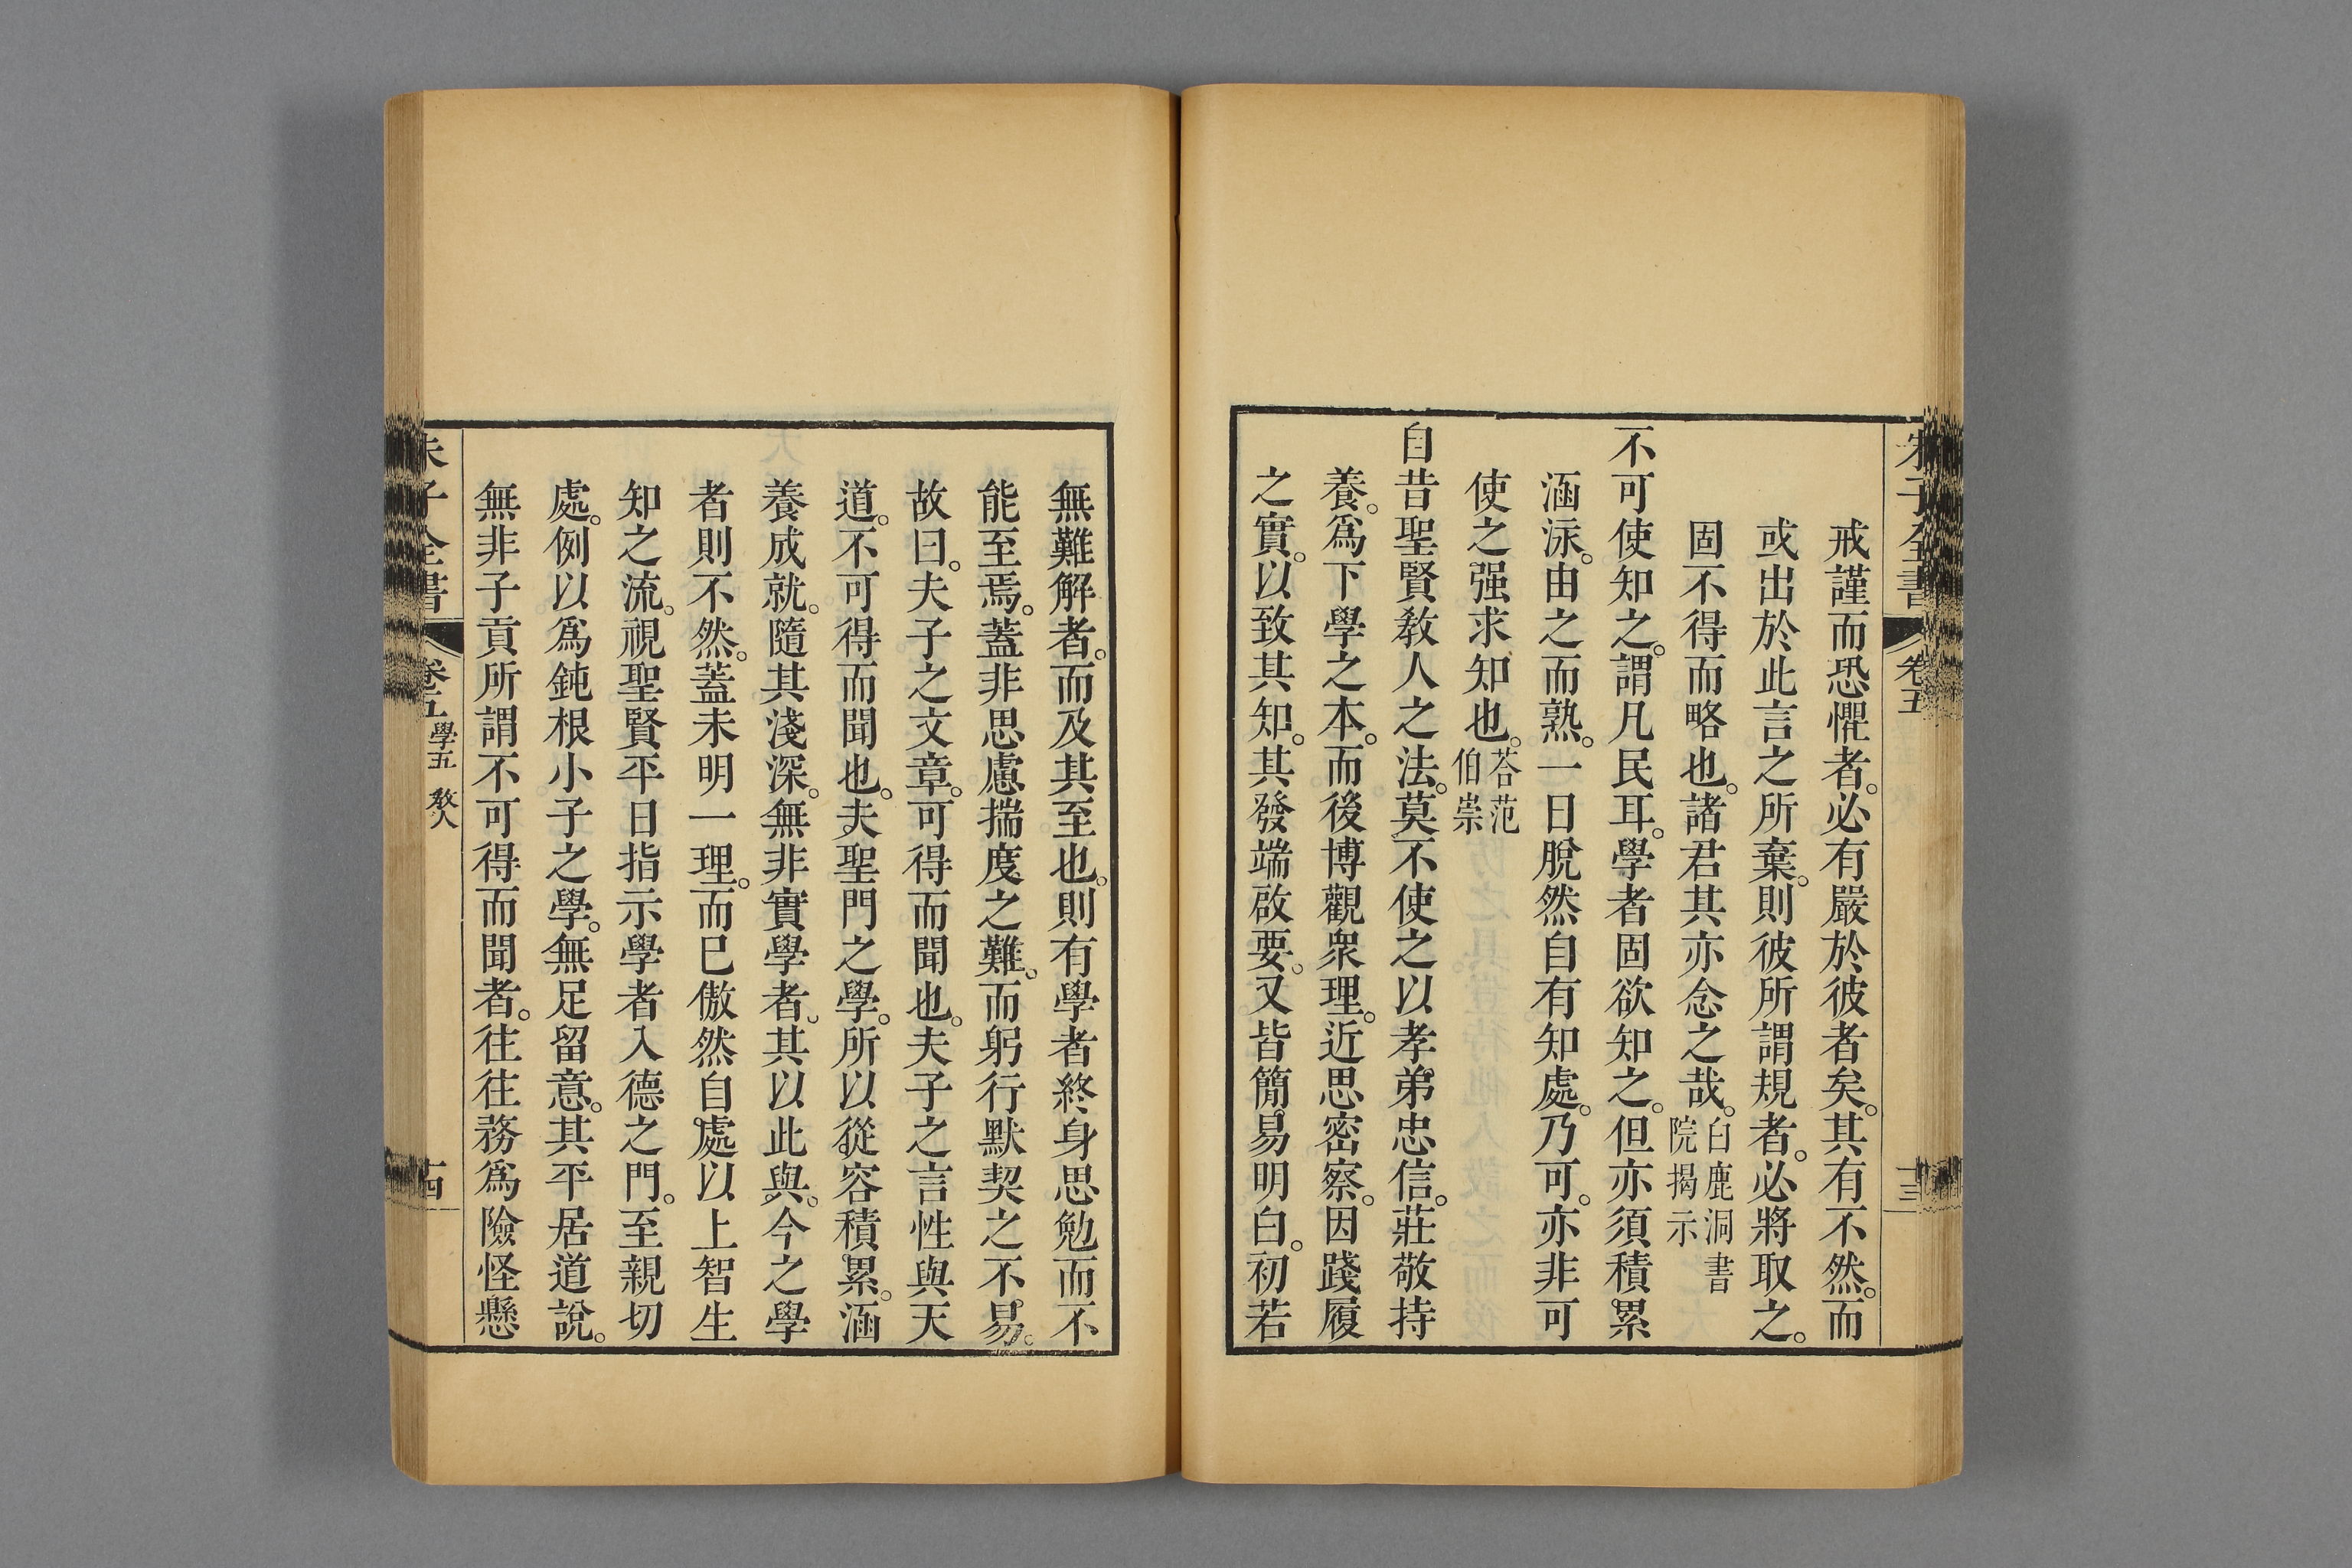 朱子全書 卷五 十三
戒謹而恐懼者。必有嚴於彼者矣。其有不然。而
或出於此言之所棄。則彼所謂規者。必將取之。
固不得而略也。諸君其亦念之哉。白鹿洞書院揭示
不可使知之。謂凡民耳。學者固欲知之。但亦須積累
涵泳。由之而熟。一日脫然自有知處。乃可。亦非可
使之强求知也。荅范伯崇
自昔聖賢敎人之法。莫不使之以孝弟忠信。莊敬持
養。爲下學之本。而後博觀衆理。近思密察。因踐履
之實。以致其知。其發端啟要。又皆簡易明白。初若
無難解者。而及其至也。則有學者終身思勉而不
能至焉。蓋非思慮揣度之難。而躬行默契之不易。
故曰。夫子之文章。可得而聞也。夫子之言性與天
道。不可得而聞也。夫聖門之學。所以從容積累。涵
養成就。隨其淺深。無非實學者。其以此與。今之學
者則不然。蓋未明一理。而巳傲然自處以上智生
知之流。視聖賢平日指示學者入德之門。至親切
處。例以爲鈍根小子之學。無足留意。其平居道說。
無非子貢所謂不可得而聞者。往往務爲險怪懸
朱子全書 卷五 學五 敎人 十四